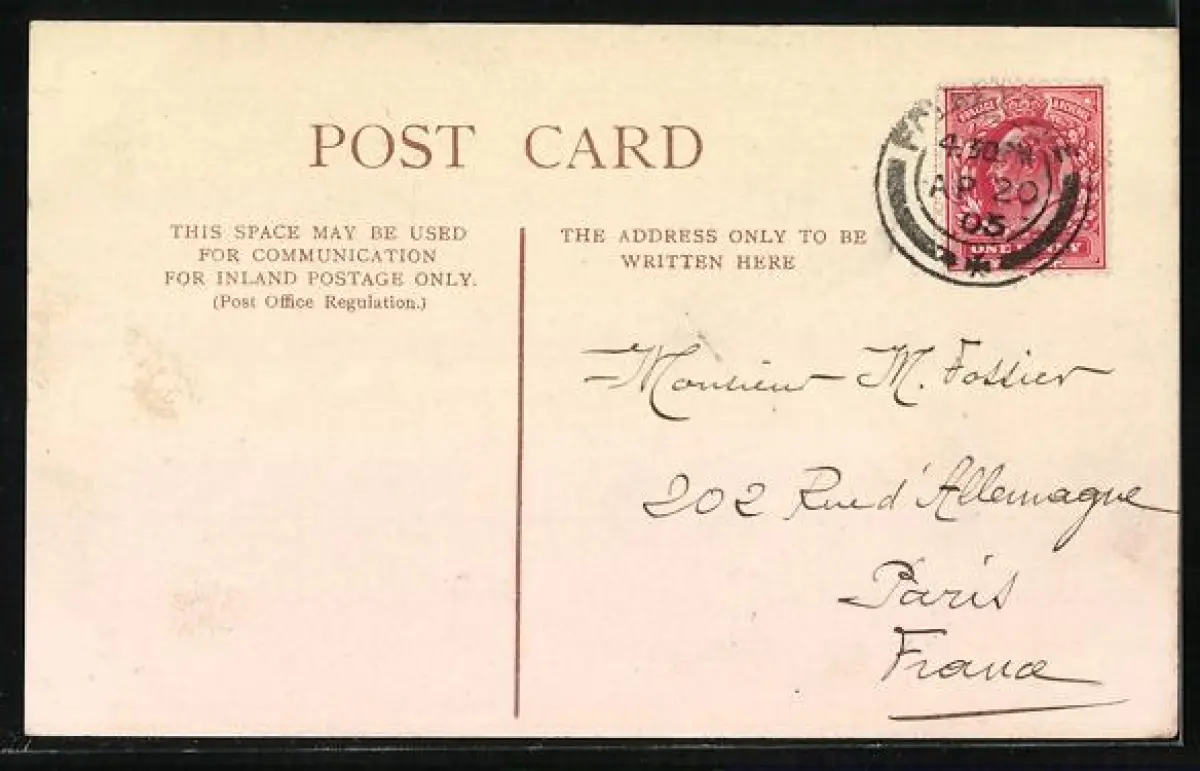 POST CARD
THIS SPACE MAY BE USED
FOR COMMUNICATION
FOR INLAND POSTAGE ONLY.
(Post Office Regulation.)
THE ADDRESS ONLY TO BE
WRITTEN HERE
POSTAGE REVENUE
4.30 PM
AP 20
05
ONE PENNY
Monsieur M. Fossier
202 Rue d'Allemagne
Paris
France